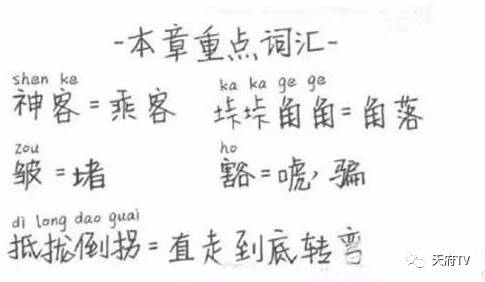 -本章重点词汇-
shen ke ka ka ge ge
神客=乘客 垰垰角角=角落
zou ho
皱=堵 豁=唬，骗
di long dao guai
抵拢倒拐=直走到底转弯
天府TV